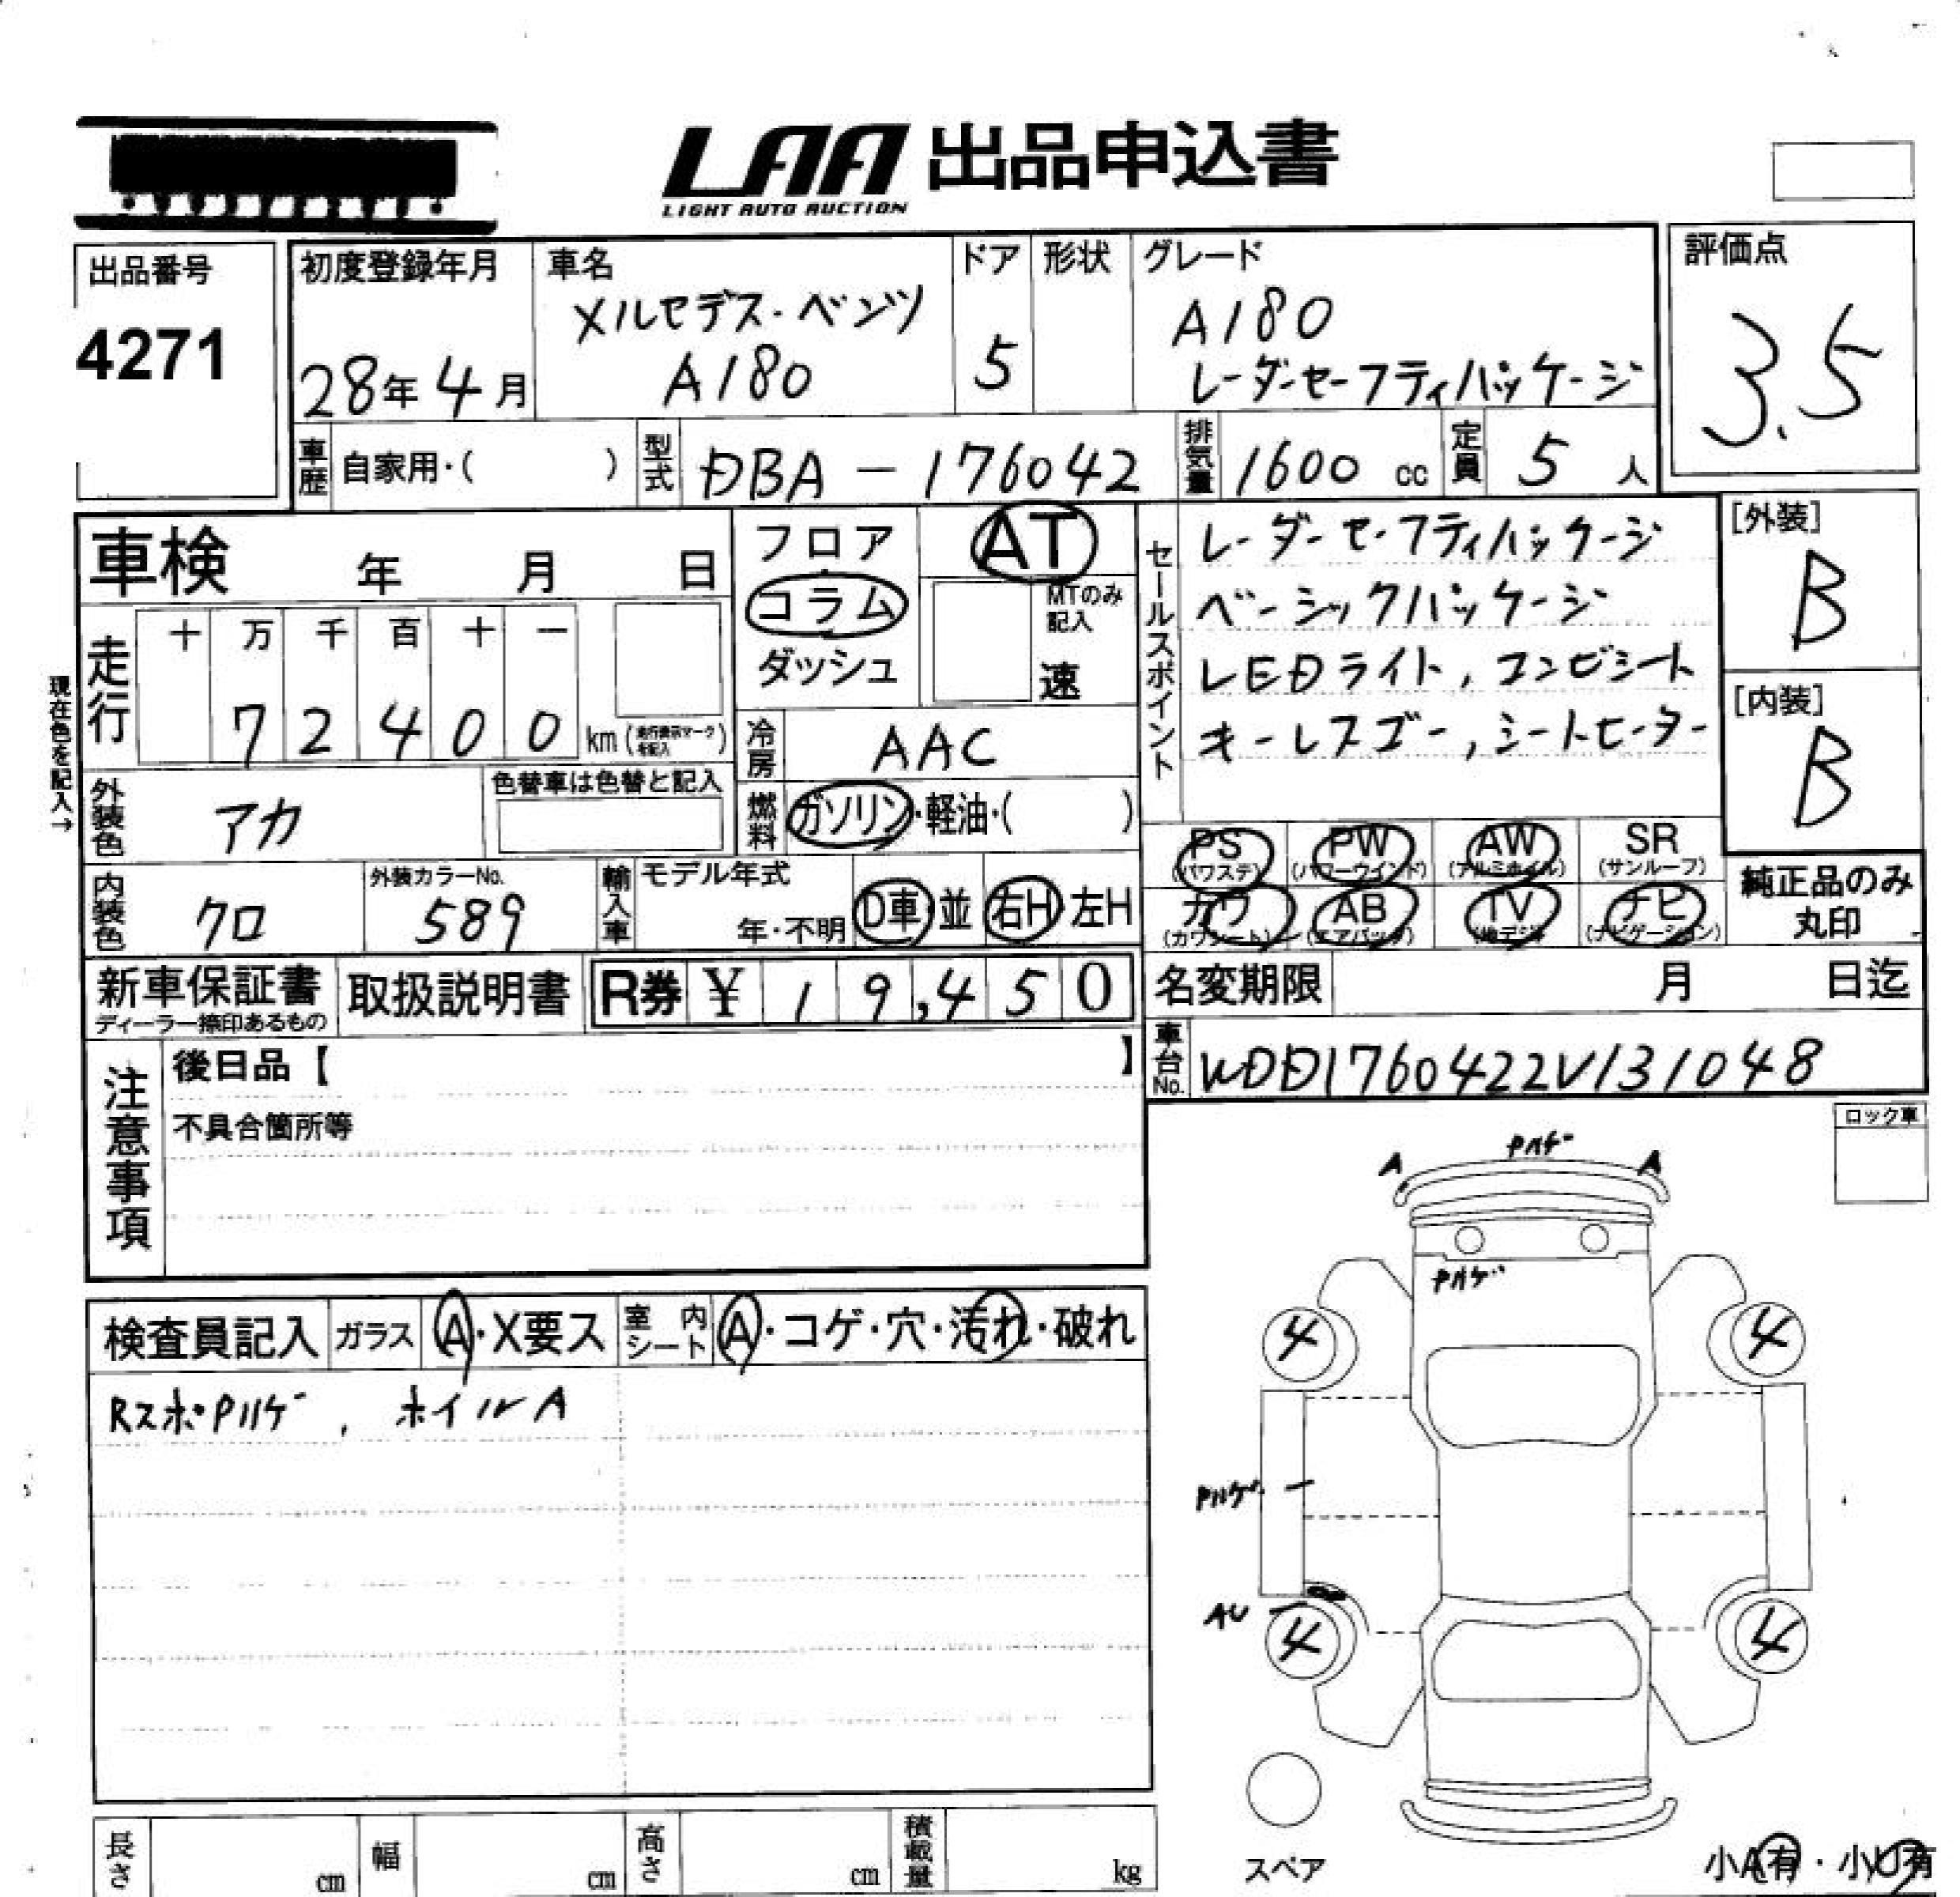 LAA 出品申込書
LIGHT AUTO AUCTION
出品番号
4271
初度登録年月
28年 4月
車名
メルセデス・ベンツ
A180
ドア
5
形状
グレード
A180
レーダーセーフティパッケージ
評価点
3.5
車歴 自家用・( )
型式 DBA-176042
排気量 1600 cc
定員 5 人
車検 年 月 日
フロア
コラム
ダッシュ
AT
MTのみ
記入
速
セールスポイント
レーダーセーフティパッケージ
ベーシックパッケージ
LEDライト, コンビシート
キーレスゴー, シートヒーター
[外装]
B
[内装]
B
現在色を記入→
走行
十 万 千 百 十 一
7 2 4 0 0 km (走行表示マークを記入)
冷房 AAC
外装色 アカ
色替車は色替と記入
燃料 ガソリン・軽油・( )
PS PW AW SR
(パワステ) (パワーウインド) (アルミホイル) (サンルーフ)
カワ AB TV ナビ
(カワシート) (エアバック) (地デジ) (ナビゲーション)
純正品のみ
丸印
内装色 クロ
外装カラーNo.
589
輸入車
モデル年式
年・不明
D車 並 右H 左H
新車保証書
ディーラー捺印あるもの
取扱説明書
R券 ¥ 19,450
名変期限 月 日迄
車台No. WDD1760422V131048
注意事項
後日品【 】
不具合箇所等
ロック車
検査員記入 ガラス A・X要ス 室内シート A・コゲ・穴・汚れ・破れ
RスポPハゲ, ホイルA
Pハゲ
A A
Pハゲ
4 4
Pハゲ
AU
4 4
スペア
小A有・小U有
長さ cm
幅 cm
高さ cm
積載量 kg